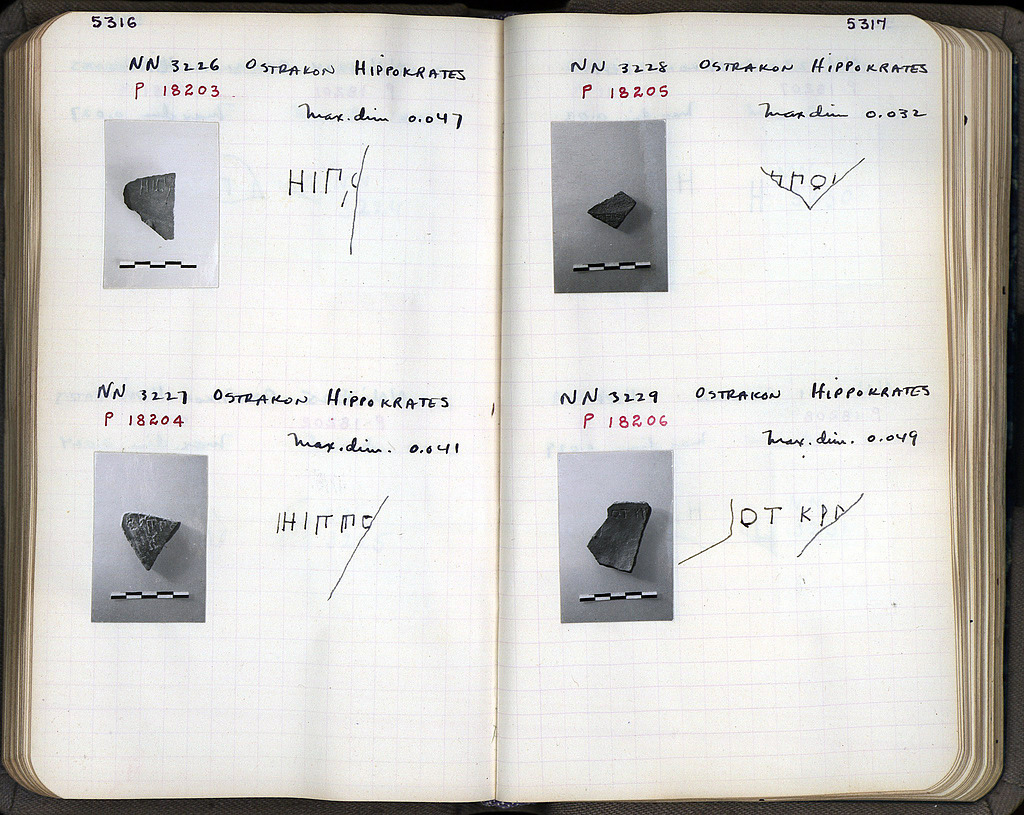 5316
NN 3226 OSTRAKON HIPPOKRATES
P 18203
Max. dim 0.047
ΗΙΠ
NN 3227 OSTRAKON HIPPOKRATES
P 18204
Max. dim. 0.041
ΗΙΠΠΟ
5317
NN 3228 OSTRAKON HIPPOKRATES
P 18205
Max dim 0.032
ΠΟ
NN 3229 OSTRAKON HIPPOKRATES
P 18206
Max. dim. 0.049
ΟΤ ΚΡ